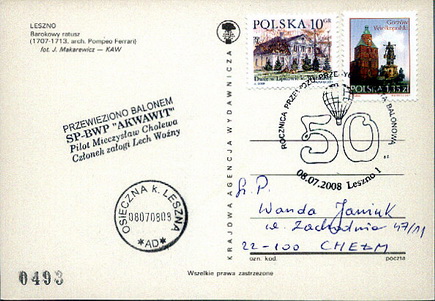 LESZNO
Barokowy ratusz
(1707-1713, arch. Pompeo Ferrari)
fot. J. Makarewicz — KAW
POLSKA 10 GR
Gostyń
Wielkopolski
POLSKA 1,35 zł
PRZEWIEZIONO BALONEM
SP-BWP "AKWAWIT"
Pilot Mieczysław Cholewa
Członek załogi Lech Woźny
KRAJOWA AGENCJA WYDAWNICZA
ROCZNICA BALONOWĄ
50
08.07.2008 Leszno 1
OSIECZNA K. LESZNA
08070809
*AD*
W.P.
Wanda Janiuk
ul. Zachodnia 47/11
22-100 CHEŁM
ozn. kod poczta
0493
Wszelkie prawa zastrzeżone